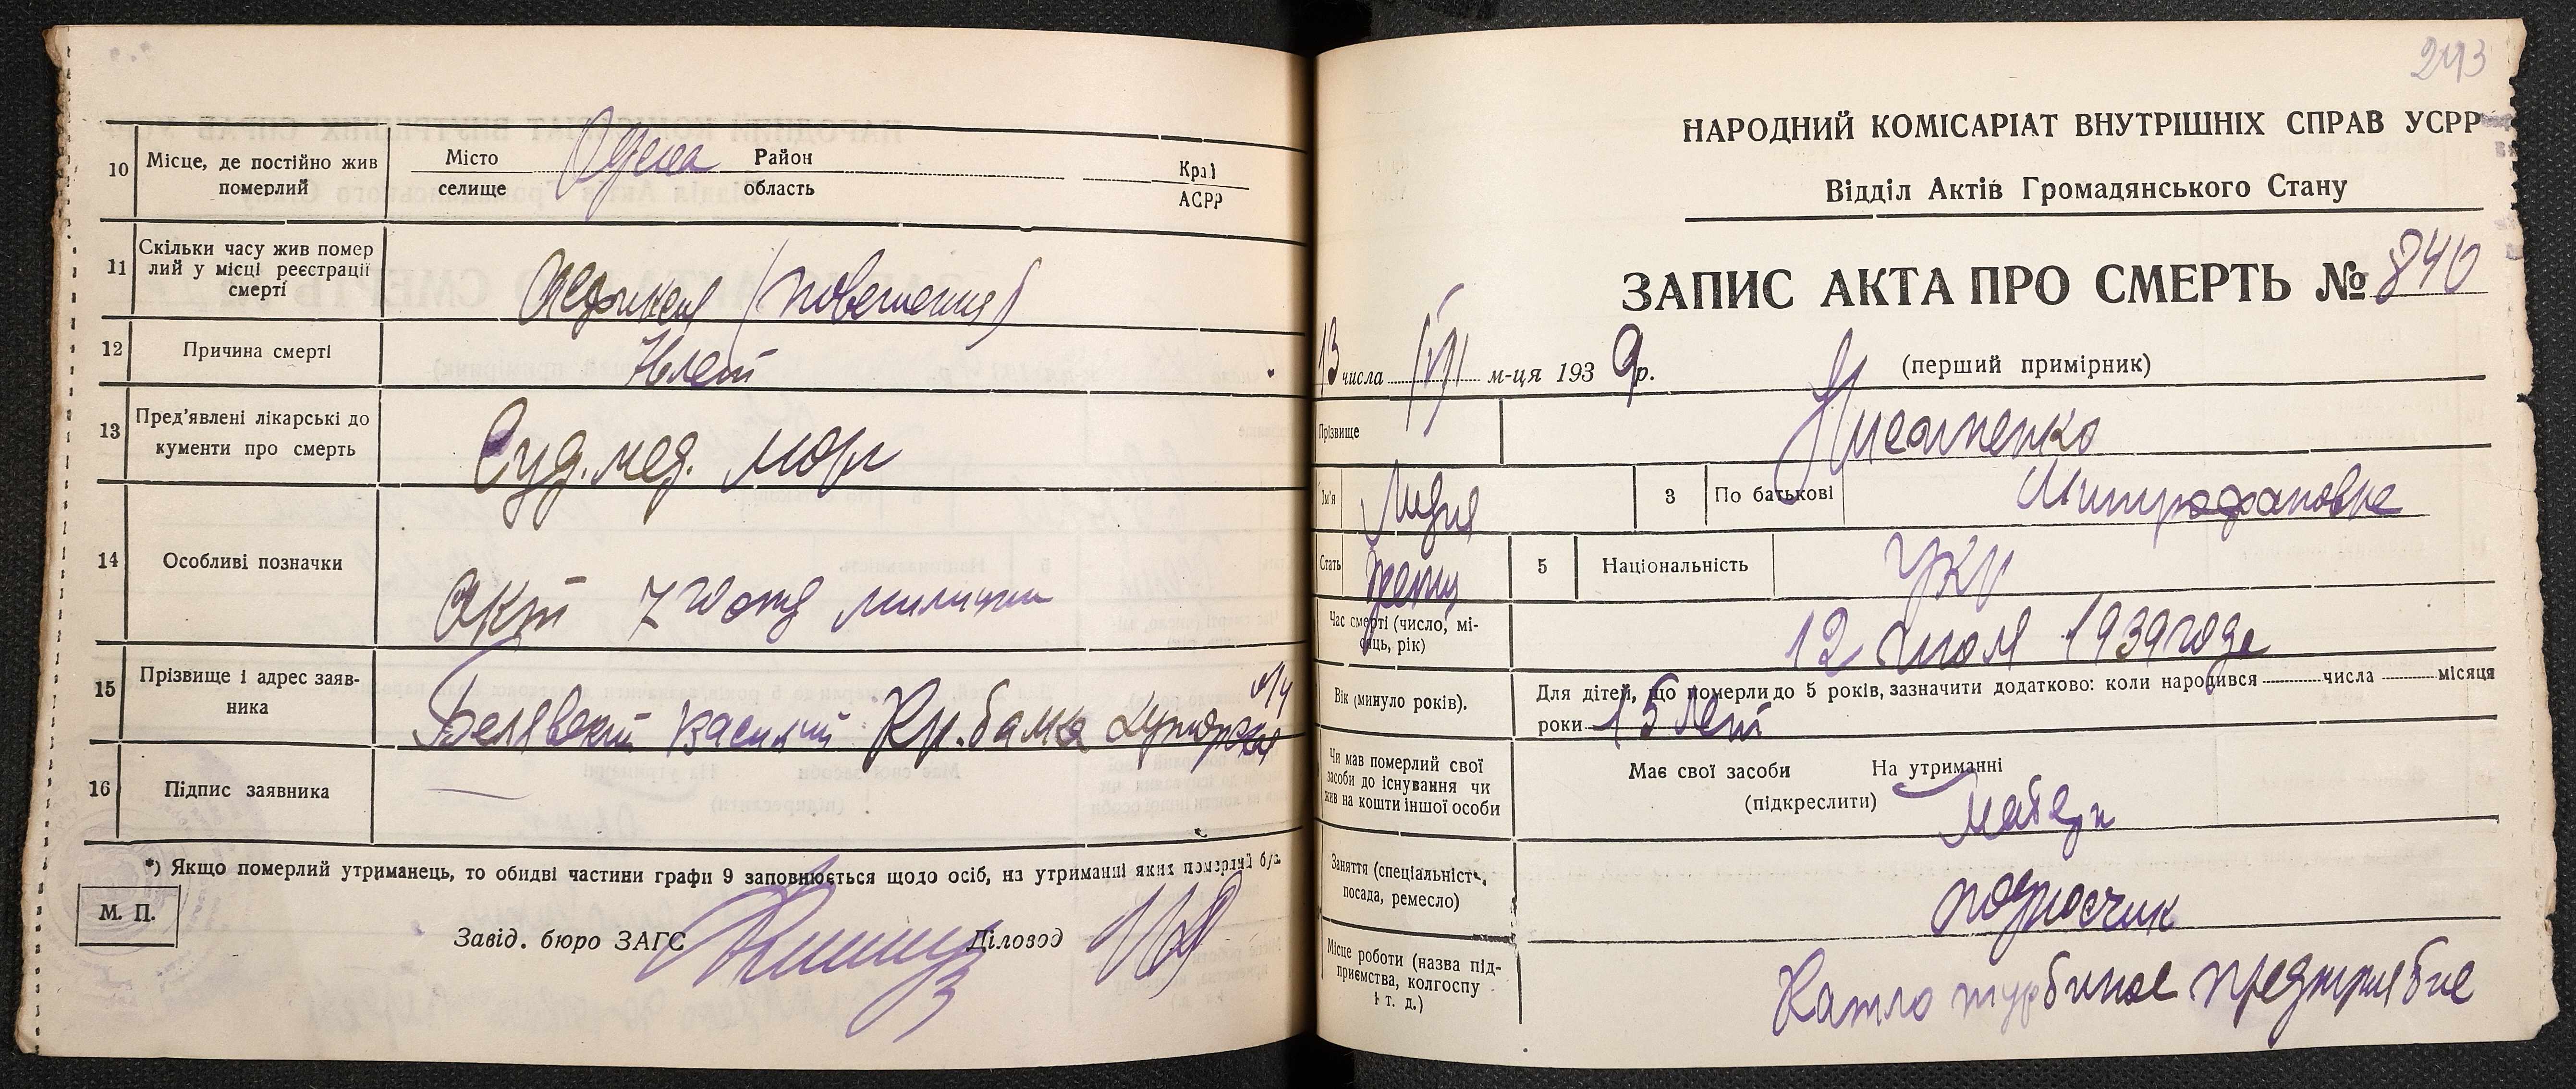 10 Місце, де постійно жив померлий Місто селище Одеса Район область Край АСРР
11 Скільки часу жив помер лий у місці реєстрації смерті Асфиксия (повешение)
12 Причина смерті
13 Пред'явлені лікарські до кументи про смерть Суд. мед. морг
14 Особливі позначки Акт 7 го отд милиции
15 Прізвище і адрес заявника Белявский Василий Кр. балка Хуторская
16 Підпис заявника
*) Якщо померлий утриманець, то обидві частини графи 9 заповнюється щодо осіб, на утриманні яких померлий був
М. П.
Завід. бюро ЗАГС Діловод
243
НАРОДНИЙ КОМІСАРІАТ ВНУТРІШНІХ СПРАВ УСРР
Відділ Актів Громадянського Стану
ЗАПИС АКТА ПРО СМЕРТЬ № 840
13 числа VII м-ця 1939 р. (перший примірник)
Прізвище
Ім'я Лидия 3 По батькові Митрофановна
Стать женщ 5 Національність укр
Час смерті (число, мі-
сяць, рік) 12 июля 1939 года
Вік (минуло років). Для дітей, що померли до 5 років, зазначити додатково: коли народився числа місяця
роки 15 лет
Чи мав померлий свої
засоби до існування чи
жив на кошти іншої особи
Має свої засоби На утриманні
(підкреслити) матери
Заняття (спеціальність,
посада, ремесло) подносчик
Місце роботи (назва під-
приємства, колгоспу
і т. д.) Катло турбиное предприятие